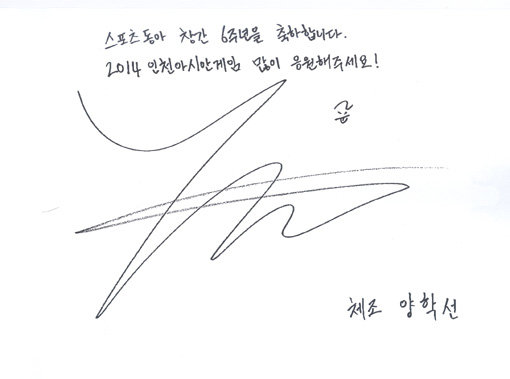 스포츠동아 창간 6주년을 축하합니다.
2014 인천아시안게임 많이 응원해주세요!
체조 양학선